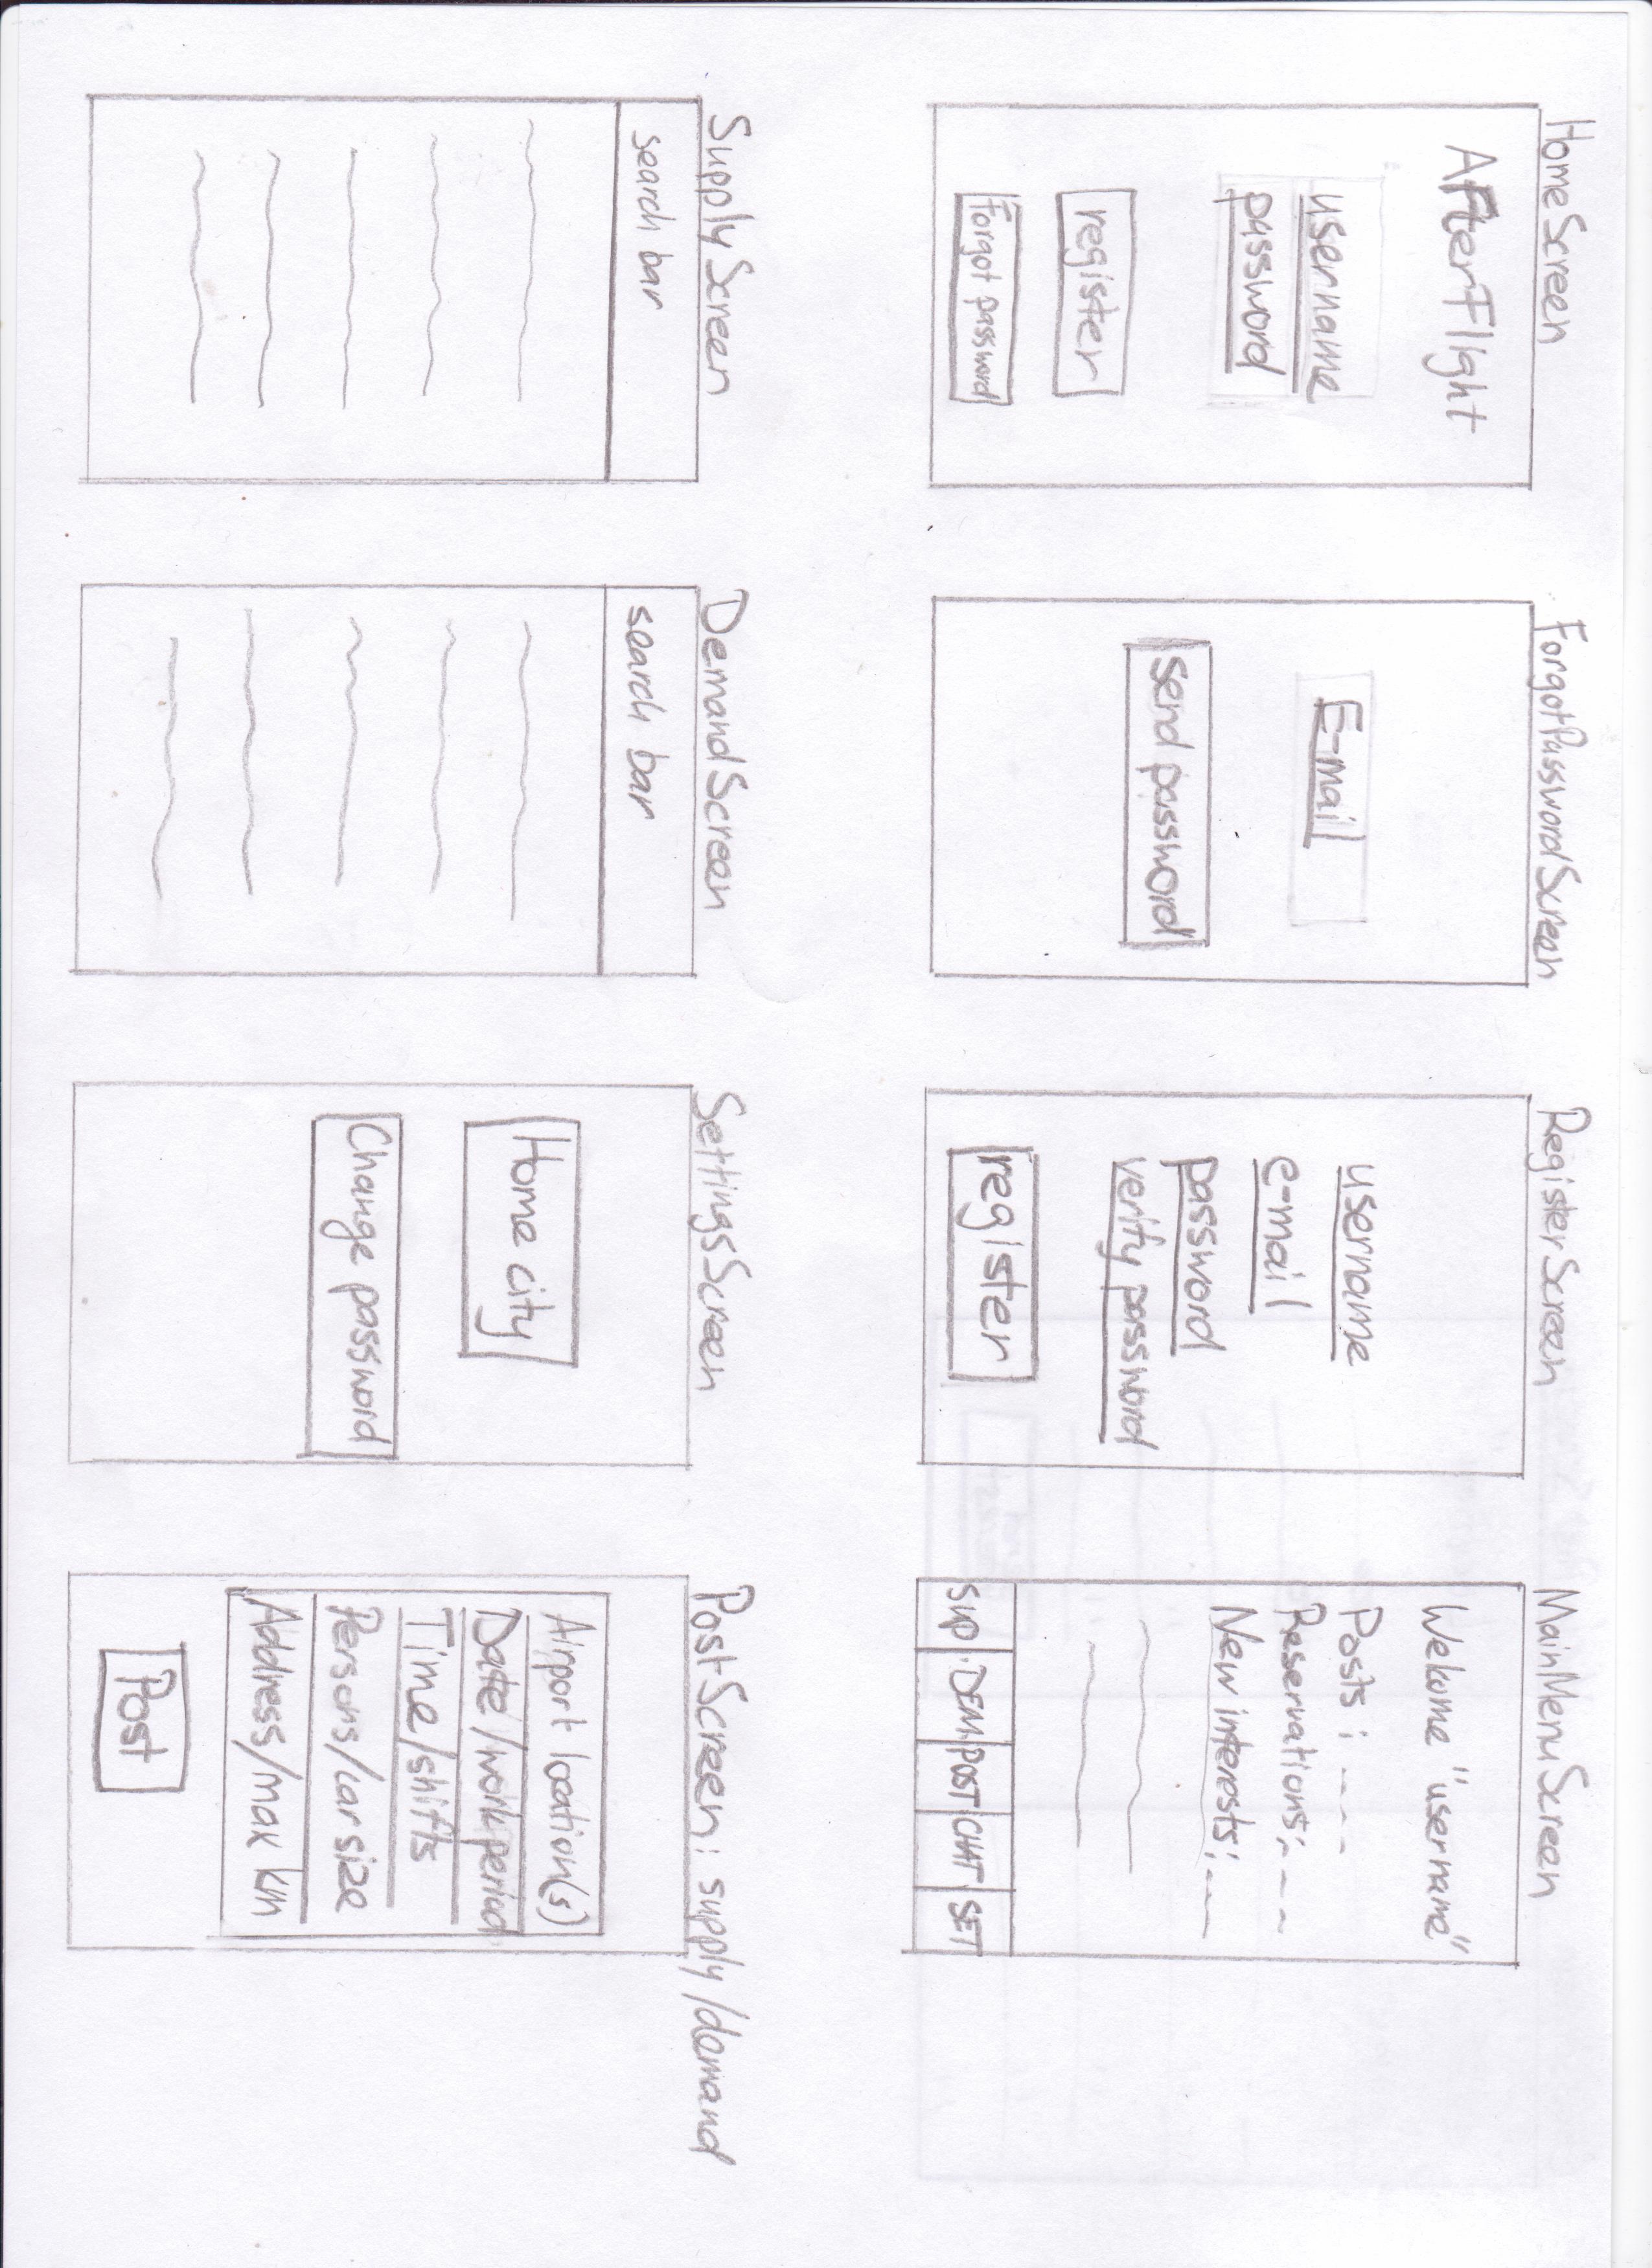 HomeScreen
AfterFlight
username
password
register
Forgot password
ForgotPasswordScreen
E-mail
send password
RegisterScreen
username
e-mail
password
verify password
register
MainMenuScreen
Welcome "username"
Posts : ----
Reservations:----
New interests:----
SUP DEM. POST CHAT SET
SupplyScreen
search bar
DemandScreen
search bar
SettingsScreen
Home city
Change password
PostScreen: supply/demand
Airport location(s)
Date/work period
Time/shifts
Persons/car size
Address/max km
Post